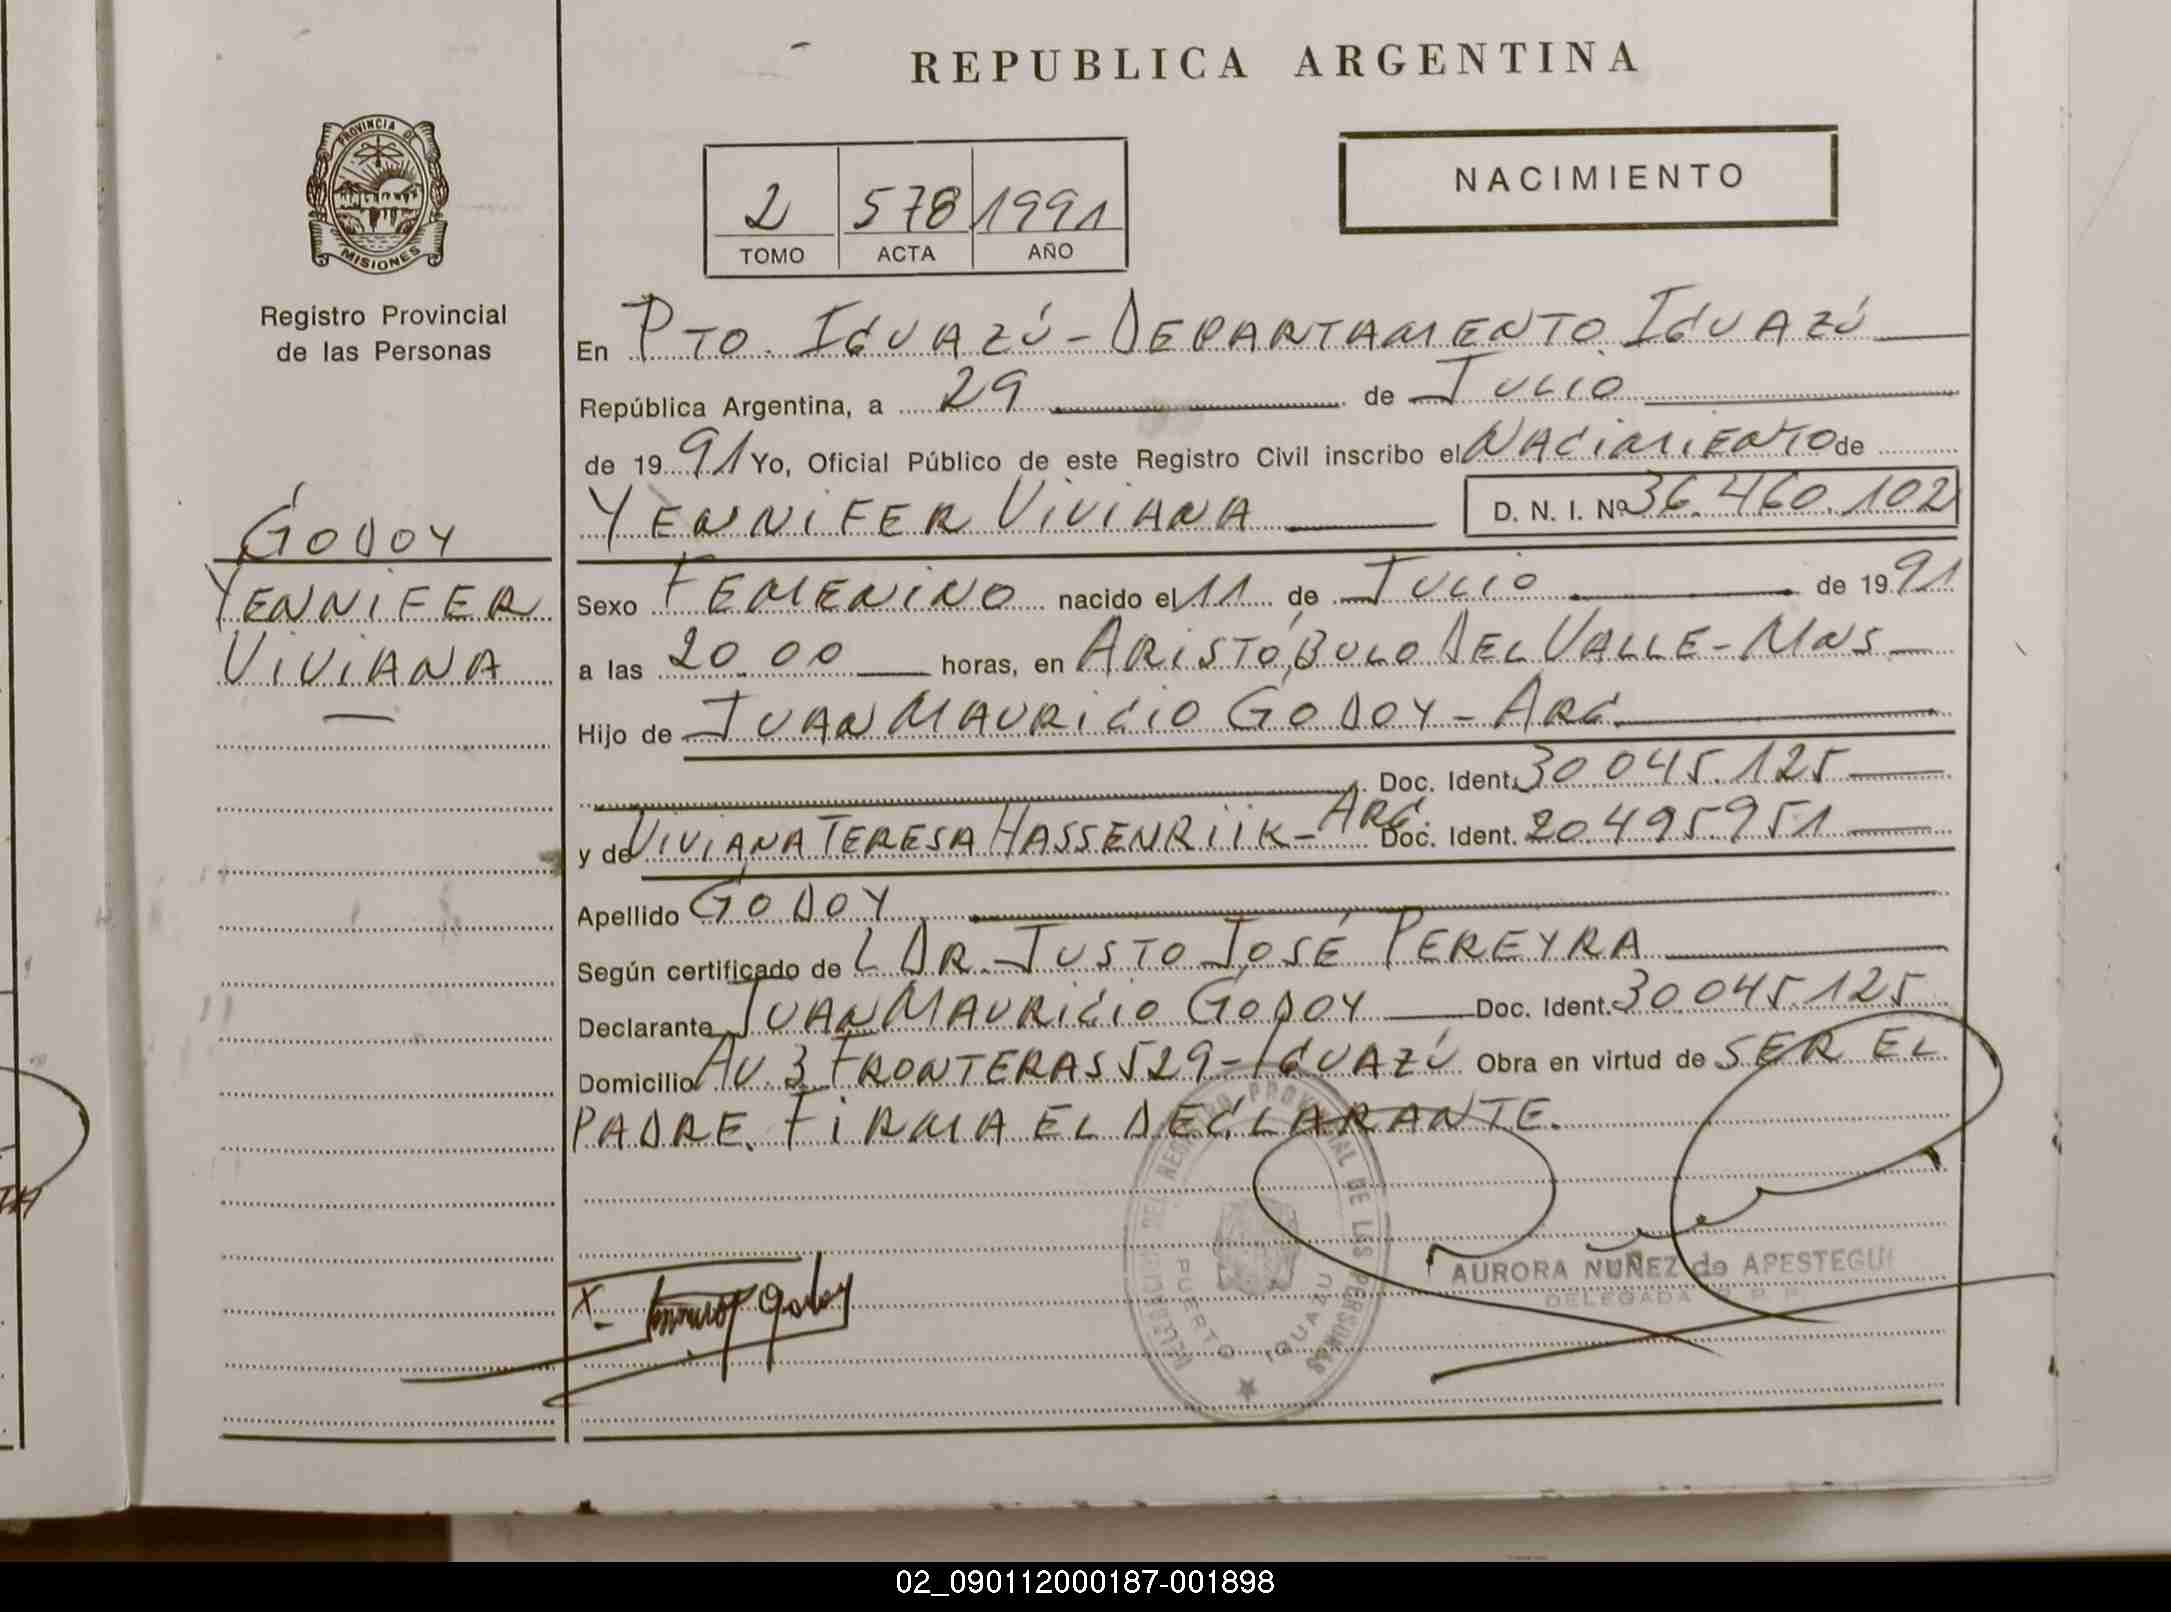 REPUBLICA ARGENTINA
PROVINCIA DE
MISIONES
Registro Provincial
de las Personas
2 578 1991
TOMO ACTA AÑO
NACIMIENTO
En PTO. IGUAZÚ - DEPARTAMENTO IGUAZÚ
República Argentina, a 29 de JULIO
de 1991 Yo, Oficial Público de este Registro Civil inscribo el NACIMIENTO de
YENNIFER VIVIANA D. N. I. Nº 36.460.102
GODOY
YENNIFER
VIVIANA
Sexo FEMENINO nacido el 11 de JULIO de 1991
a las 20.00 horas, en ARISTÓBULO DEL VALLE - MNS
Hijo de JUAN MAURICIO GODOY - ARG.
Doc. Ident. 30.045.125
y de VIVIANA TERESA HASSENRIIK - ARG. Doc. Ident. 20.495.951
Apellido GODOY
Según certificado de L DR. JUSTO JOSÉ PEREYRA
Declarante JUAN MAURICIO GODOY Doc. Ident. 30.045.125
Domicilio AV. 3 FRONTERAS 529 - IGUAZÚ Obra en virtud de SER EL
PADRE. FIRMA EL DECLARANTE.
REGISTRO PROVINCIAL DE LAS PERSONAS
PUERTO IGUAZU
AURORA NUÑEZ de APESTEGUI
DELEGADA R. P. P.
X- Godoy
02_090112000187-001898